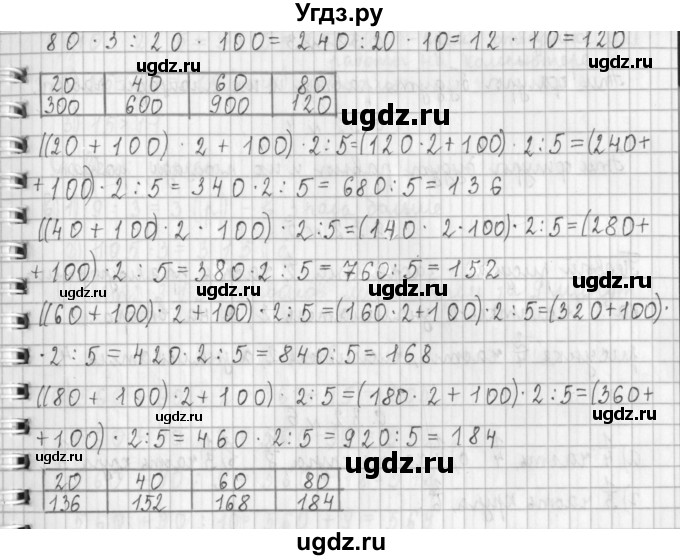 Угдз.ру
80 · 3 : 20 · 100 = 240 : 20 · 10 = 12 · 10 = 120
ugdz.ru ugdz.ru ugdz.ru
20 40 60 80
300 600 900 120
ugdz.ru
((20 + 100) · 2 + 100) · 2 : 5 = (120 · 2 + 100) · 2 : 5 = (240 +
+ 100) · 2 : 5 = 340 · 2 : 5 = 680 : 5 = 136
ugdz.ru
((40 + 100) · 2 · 100) · 2 : 5 = (140 · 2 · 100) · 2 : 5 = (280 +
+ 100) · 2 : 5 = 380 · 2 : 5 = 760 : 5 = 152
ugdz.ru ugdz.ru ugdz.ru ugdz.ru
((60 + 100) · 2 + 100) · 2 : 5 = (160 · 2 + 100) · 2 : 5 = (320 + 100) ·
· 2 : 5 = 420 · 2 : 5 = 840 : 5 = 168
((80 + 100) · 2 + 100) · 2 : 5 = (180 · 2 + 100) · 2 : 5 = (360 +
ugdz.ru ugdz.ru ugdz.ru
+ 100) · 2 : 5 = 460 · 2 : 5 = 920 : 5 = 184
ugdz.ru ugdz.ru ugdz.ru
20 40 60 80
136 152 168 184
ugdz.ru ugdz.ru